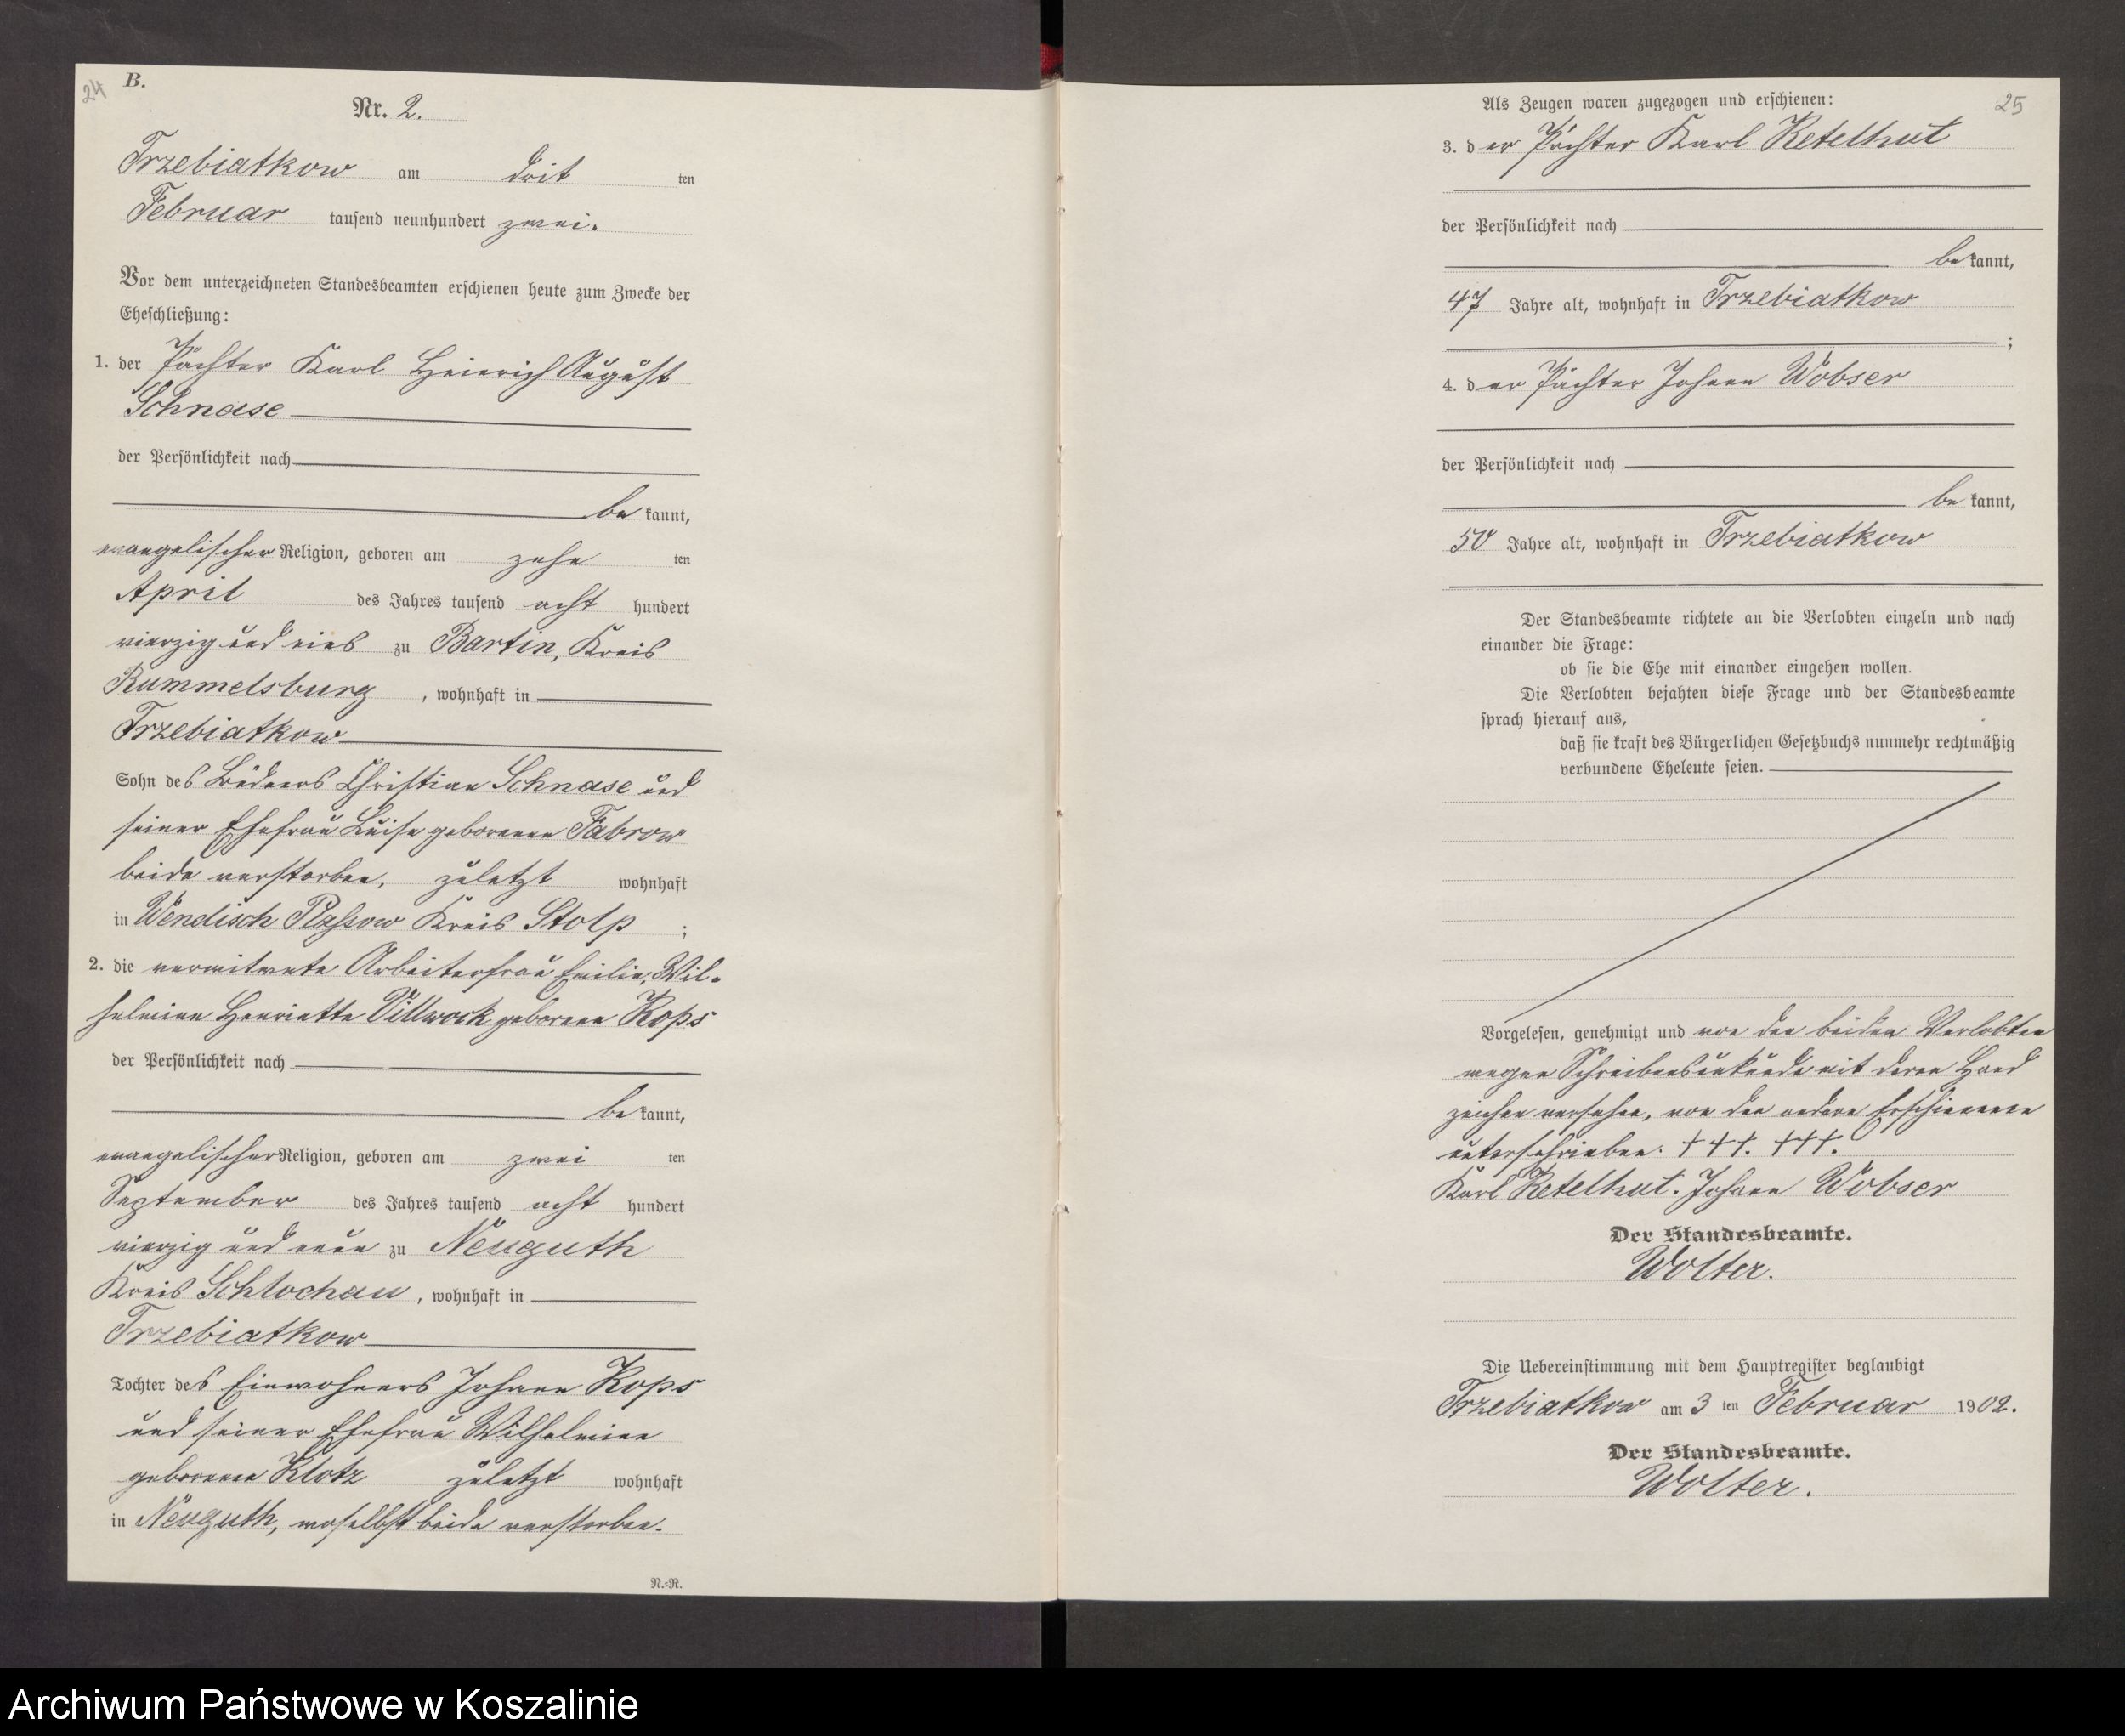 24
B.
Nr. 2.
Trzebiatkow am dritten
Februar tausend neunhundert zwei.
Vor dem unterzeichneten Standesbeamten erschienen heute zum Zwecke der
Eheschließung:
1. der Pächter Karl Heinrich August
Schnase
der Persönlichkeit nach
be kannt,
evangelischer Religion, geboren am zehn ten
April des Jahres tausend acht hundert
vierzig und eins zu Bartin, Kreis
Rummelsburg, wohnhaft in
Trzebiatkow
Sohn des Büdners Christian Schnase und
seiner Ehefrau Luise geborenen Fabrow
beide verstorben, zuletzt wohnhaft
in Wendisch Plassow Kreis Stolp ;
2. die verwitwete Arbeiterfrau Emilie, Wil-
helmine Henriette Villwock geborene Kops
der Persönlichkeit nach
be kannt,
evangelischer Religion, geboren am zwei ten
September des Jahres tausend acht hundert
vierzig und neun zu Neuguth
Kreis Schlochau, wohnhaft in
Trzebiatkow
Tochter des Einwohners Johann Kops
und seiner Ehefrau Wilhelmine
geborenen Klotz zuletzt wohnhaft
in Neuguth, woselbst beide verstorben.
N.=R.
25
Als Zeugen waren zugezogen und erschienen:
3. der Pächter Karl Retelhut
der Persönlichkeit nach
be kannt,
47 Jahre alt, wohnhaft in Trzebiatkow
;
4. der Pächter Johann Wobser
der Persönlichkeit nach
be kannt,
50 Jahre alt, wohnhaft in Trzebiatkow
Der Standesbeamte richtete an die Verlobten einzeln und nach
einander die Frage:
ob sie die Ehe mit einander eingehen wollen.
Die Verlobten bejahten diese Frage und der Standesbeamte
sprach hierauf aus,
daß sie kraft des Bürgerlichen Gesetzbuchs nunmehr rechtmäßig
verbundene Eheleute seien.
Vorgelesen, genehmigt und von den beiden Verlobten
wegen Schreibensunkunde mit deren Hand
zeichen versehen, von den andern Erschienenen
unterschrieben: +++. +++.
Karl Retelhut. Johann Wobser
Der Standesbeamte.
Wolter.
Die Uebereinstimmung mit dem Hauptregister beglaubigt
Trzebiatkow am 3 ten Februar 1902.
Der Standesbeamte.
Wolter.
Archiwum Państwowe w Koszalinie